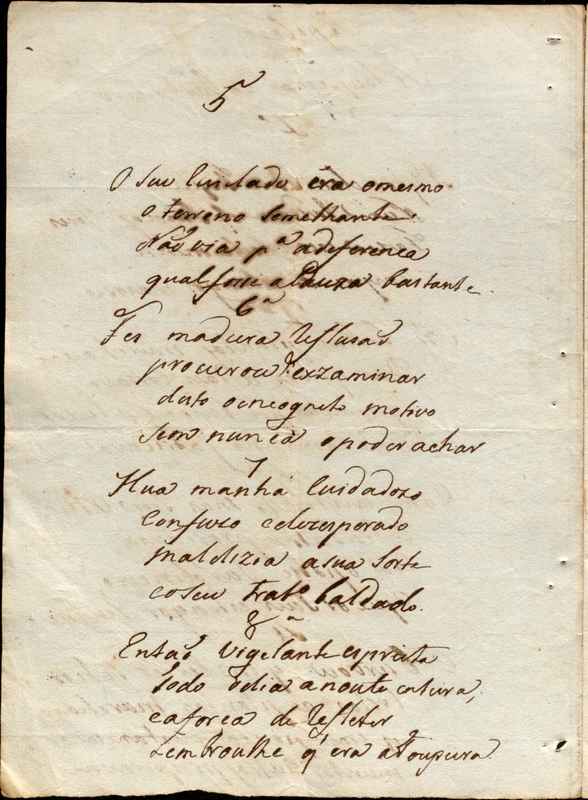 5ª
O seu Cuidado éra omesmo
O terreno Semelhante.
Naõ via pª adeferença
qual fosse a Cauza bastante.
6ª
Fes madura Reflusaõ
procurou exzaminar
disto oincognito motivo
sem nunca opoder achar
7
Hua manhá Cuidadozo
Confuzo edezesperado
maldizia asua Sorte
eoseu tratº baldado.
8ª
Entaõ vigelante espreita
todo odia anoute enteira,
eaforca de Refleter
Lembroulhe q' era a toupura.